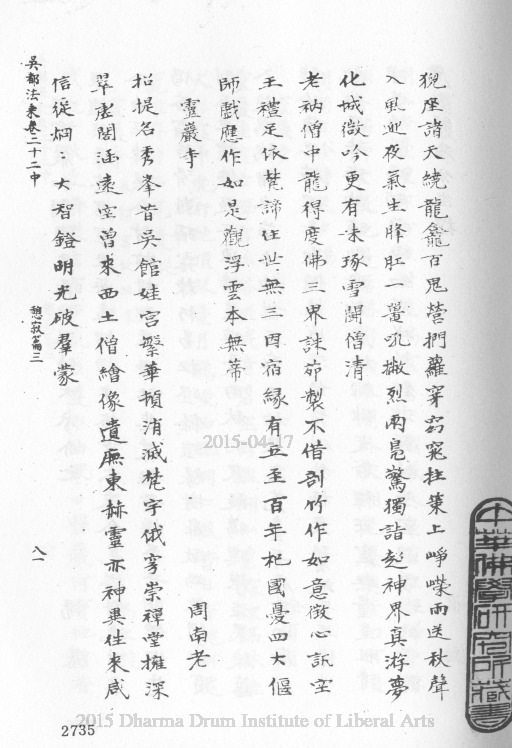 猊座諸天繞龍龕百鬼營捫蘿穿窈窕拄策上崢嶸雨送秋聲
入風迎夜氣生胮肛一黌吼撇烈兩鳧驚獨詣超神界真游夢
化城微吟更有未琢雪關僧清
老衲僧中龍得度佛三界誅茆製不借剖竹作如意微心訊空
王禮足依梵諦往世無三四宿緣有五至百年杞國憂四大偃
師戲應作如是觀浮雲本無蒂
靈巖寺
周南老
招提名秀峯昔吳館娃宮繁華頓消滅梵宇俄穹崇禪堂擁深
翠虛閣函遠空曾來西土僧繪像遺廡東赫靈亦神異往來咸
信從炯炯大智鐙明光破羣蒙
吳都法乘卷二十二中
憩寂篇三
八一
中華佛學研究所藏書
2015-04-17
2735
2015 Dharma Drum Institute of Liberal Arts